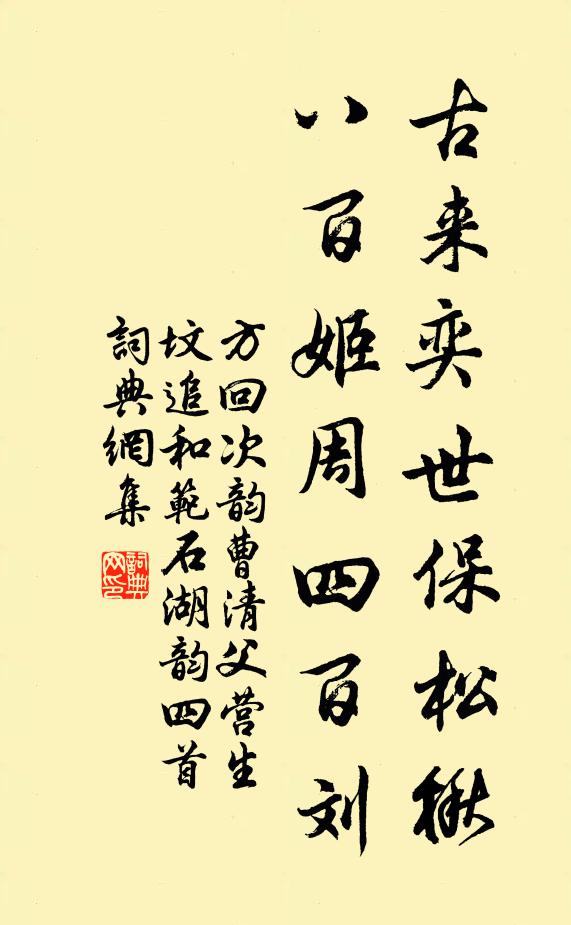 古来奕世保松楸
八百姬周四百刘
方回次韵曹清父营生
坟追和範石湖韵四首
詞典網集
詞典网印